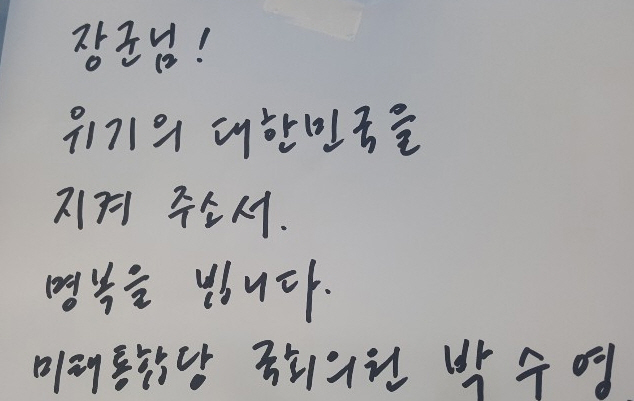 장군님!
위기의 대한민국을
지켜 주소서.
명복을 빕니다.
미래통합당 국회의원 박수영